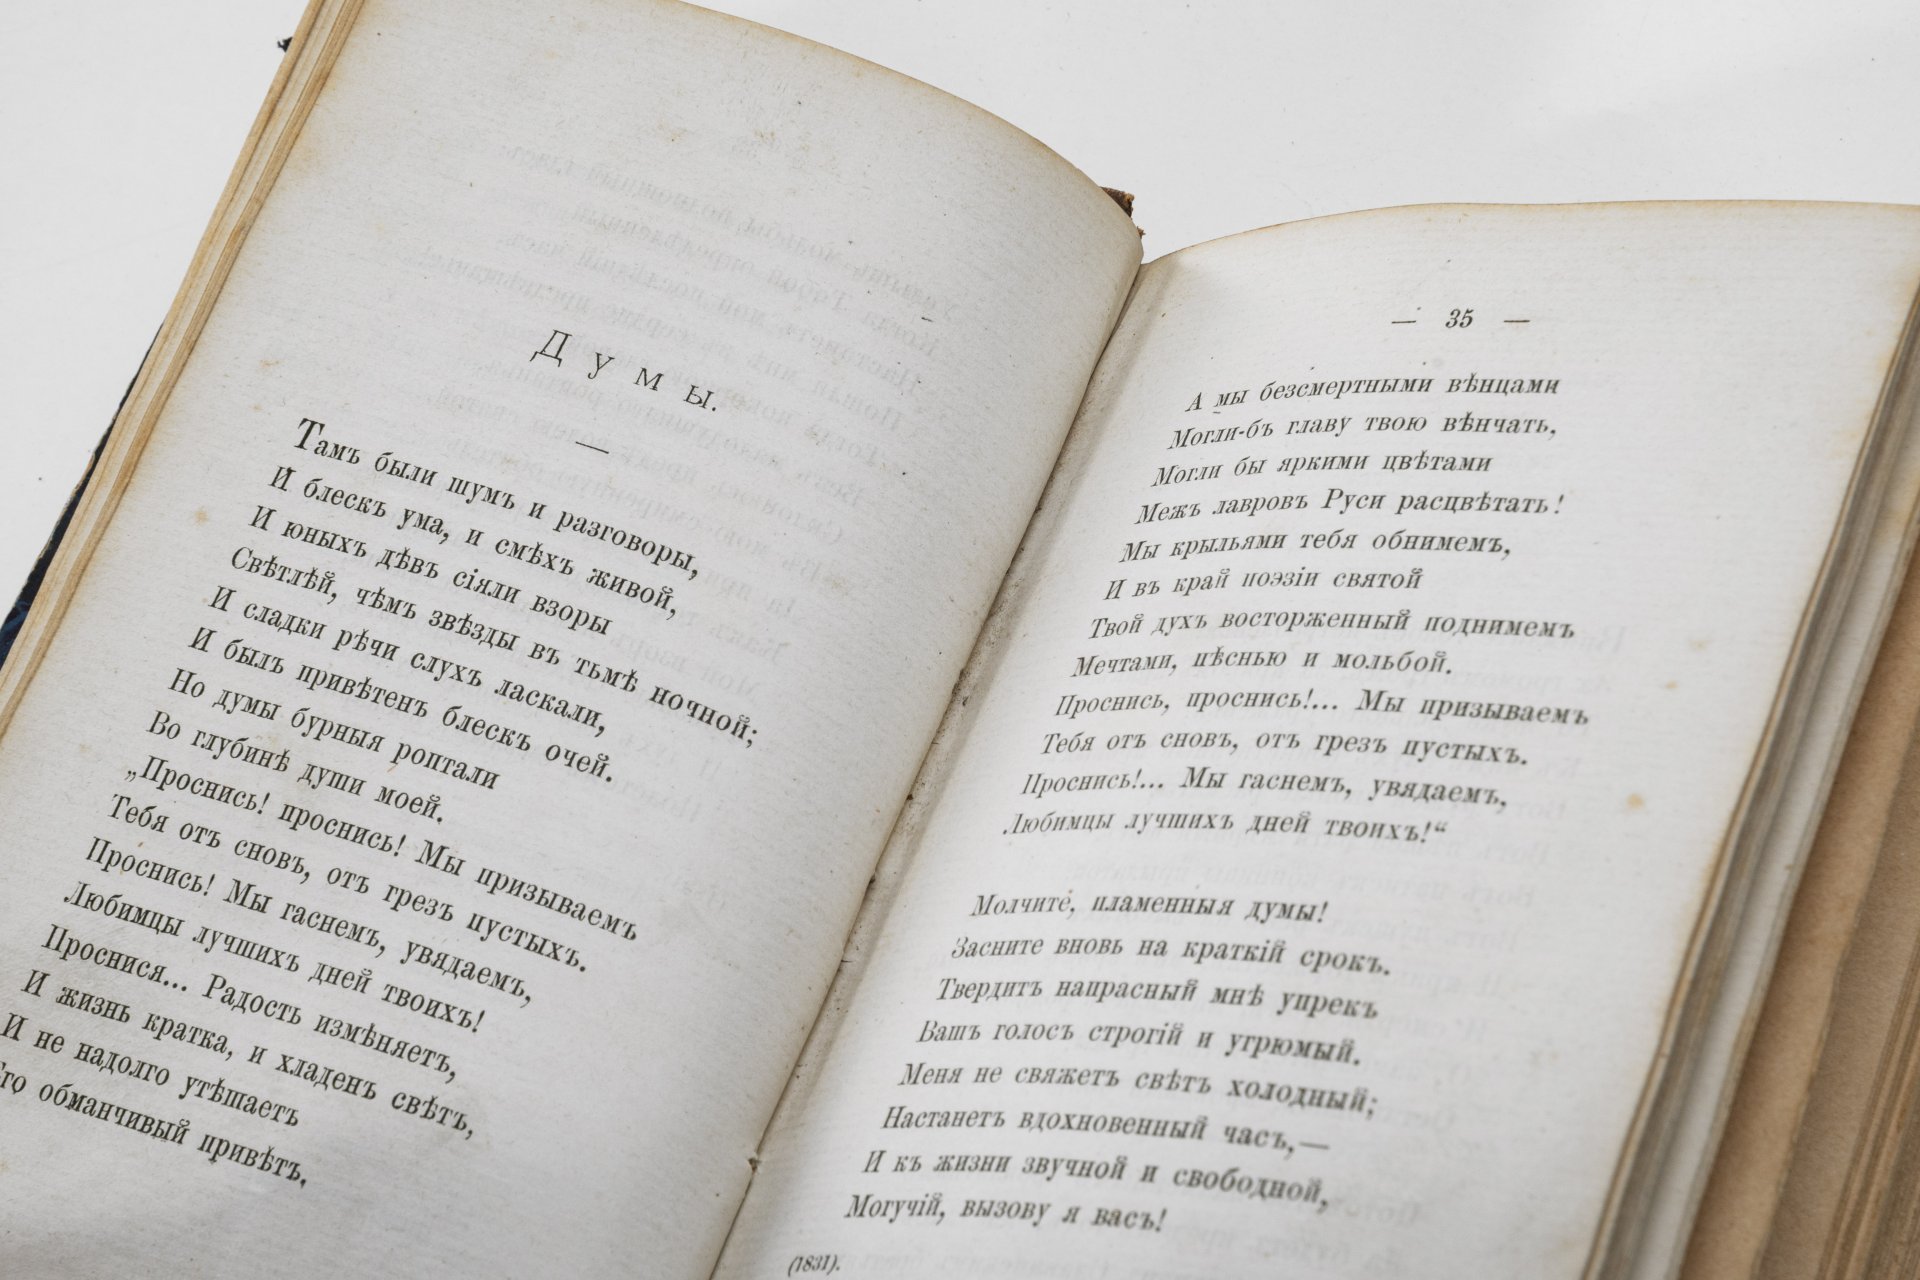 Думы.
Тамъ были шумъ и разговоры,
И блескъ ума, и смѣхъ живой,
И юныхъ дѣвъ сіяли взоры
Свѣтлѣй, чѣмъ звѣзды въ тьмѣ ночной;
И сладки рѣчи слухъ ласкали,
И былъ привѣтенъ блескъ очей.
Но думы бурныя роптали
Во глубинѣ души моей.
„Проснись! проснись! Мы призываемъ
Тебя отъ сновъ, отъ грезъ пустыхъ.
Проснись! Мы гаснемъ, увядаемъ,
Любимцы лучшихъ дней твоихъ!
Проснися... Радость измѣняетъ,
И жизнь кратка, и хладенъ свѣтъ,
И не надолго утѣшаетъ
Его обманчивый привѣтъ.
— 35 —
А мы безсмертными вѣнцами
Могли-бъ главу твою вѣнчать,
Могли бы яркими цвѣтами
Межъ лавровъ Руси расцвѣтать!
Мы крыльями тебя обнимемъ,
И въ край поэзіи святой
Твой духъ восторженный поднимемъ
Мечтами, пѣснью и мольбой.
Проснись, проснись!... Мы призываемъ
Тебя отъ сновъ, отъ грезъ пустыхъ.
Проснись!... Мы гаснемъ, увядаемъ,
Любимцы лучшихъ дней твоихъ!“
Молчите, пламенныя думы!
Засните вновь на краткій срокъ.
Твердитъ напрасный мнѣ упрекъ
Вашъ голосъ строгій и угрюмый.
Меня не свяжетъ свѣтъ холодный;
Настанетъ вдохновенный часъ,—
И къ жизни звучной и свободной,
Могучій, вызову я васъ!
(1831).